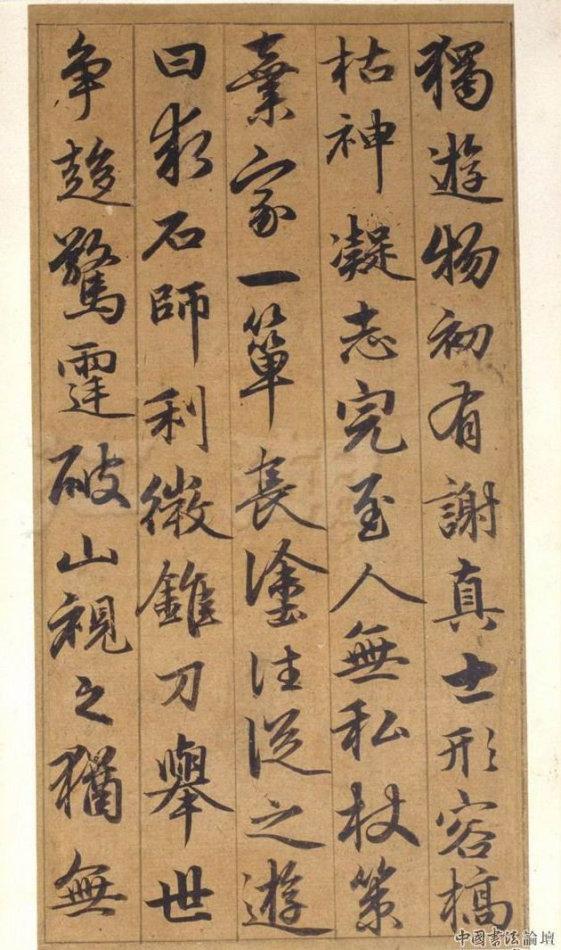 獨遊物初有謝真士形容槁
枯神凝志完至人無私杖策
棄家一簞長塗往從之遊
曰石師利微錐刀舉世
争趍驚霆破山視之猶無
中國書法論壇